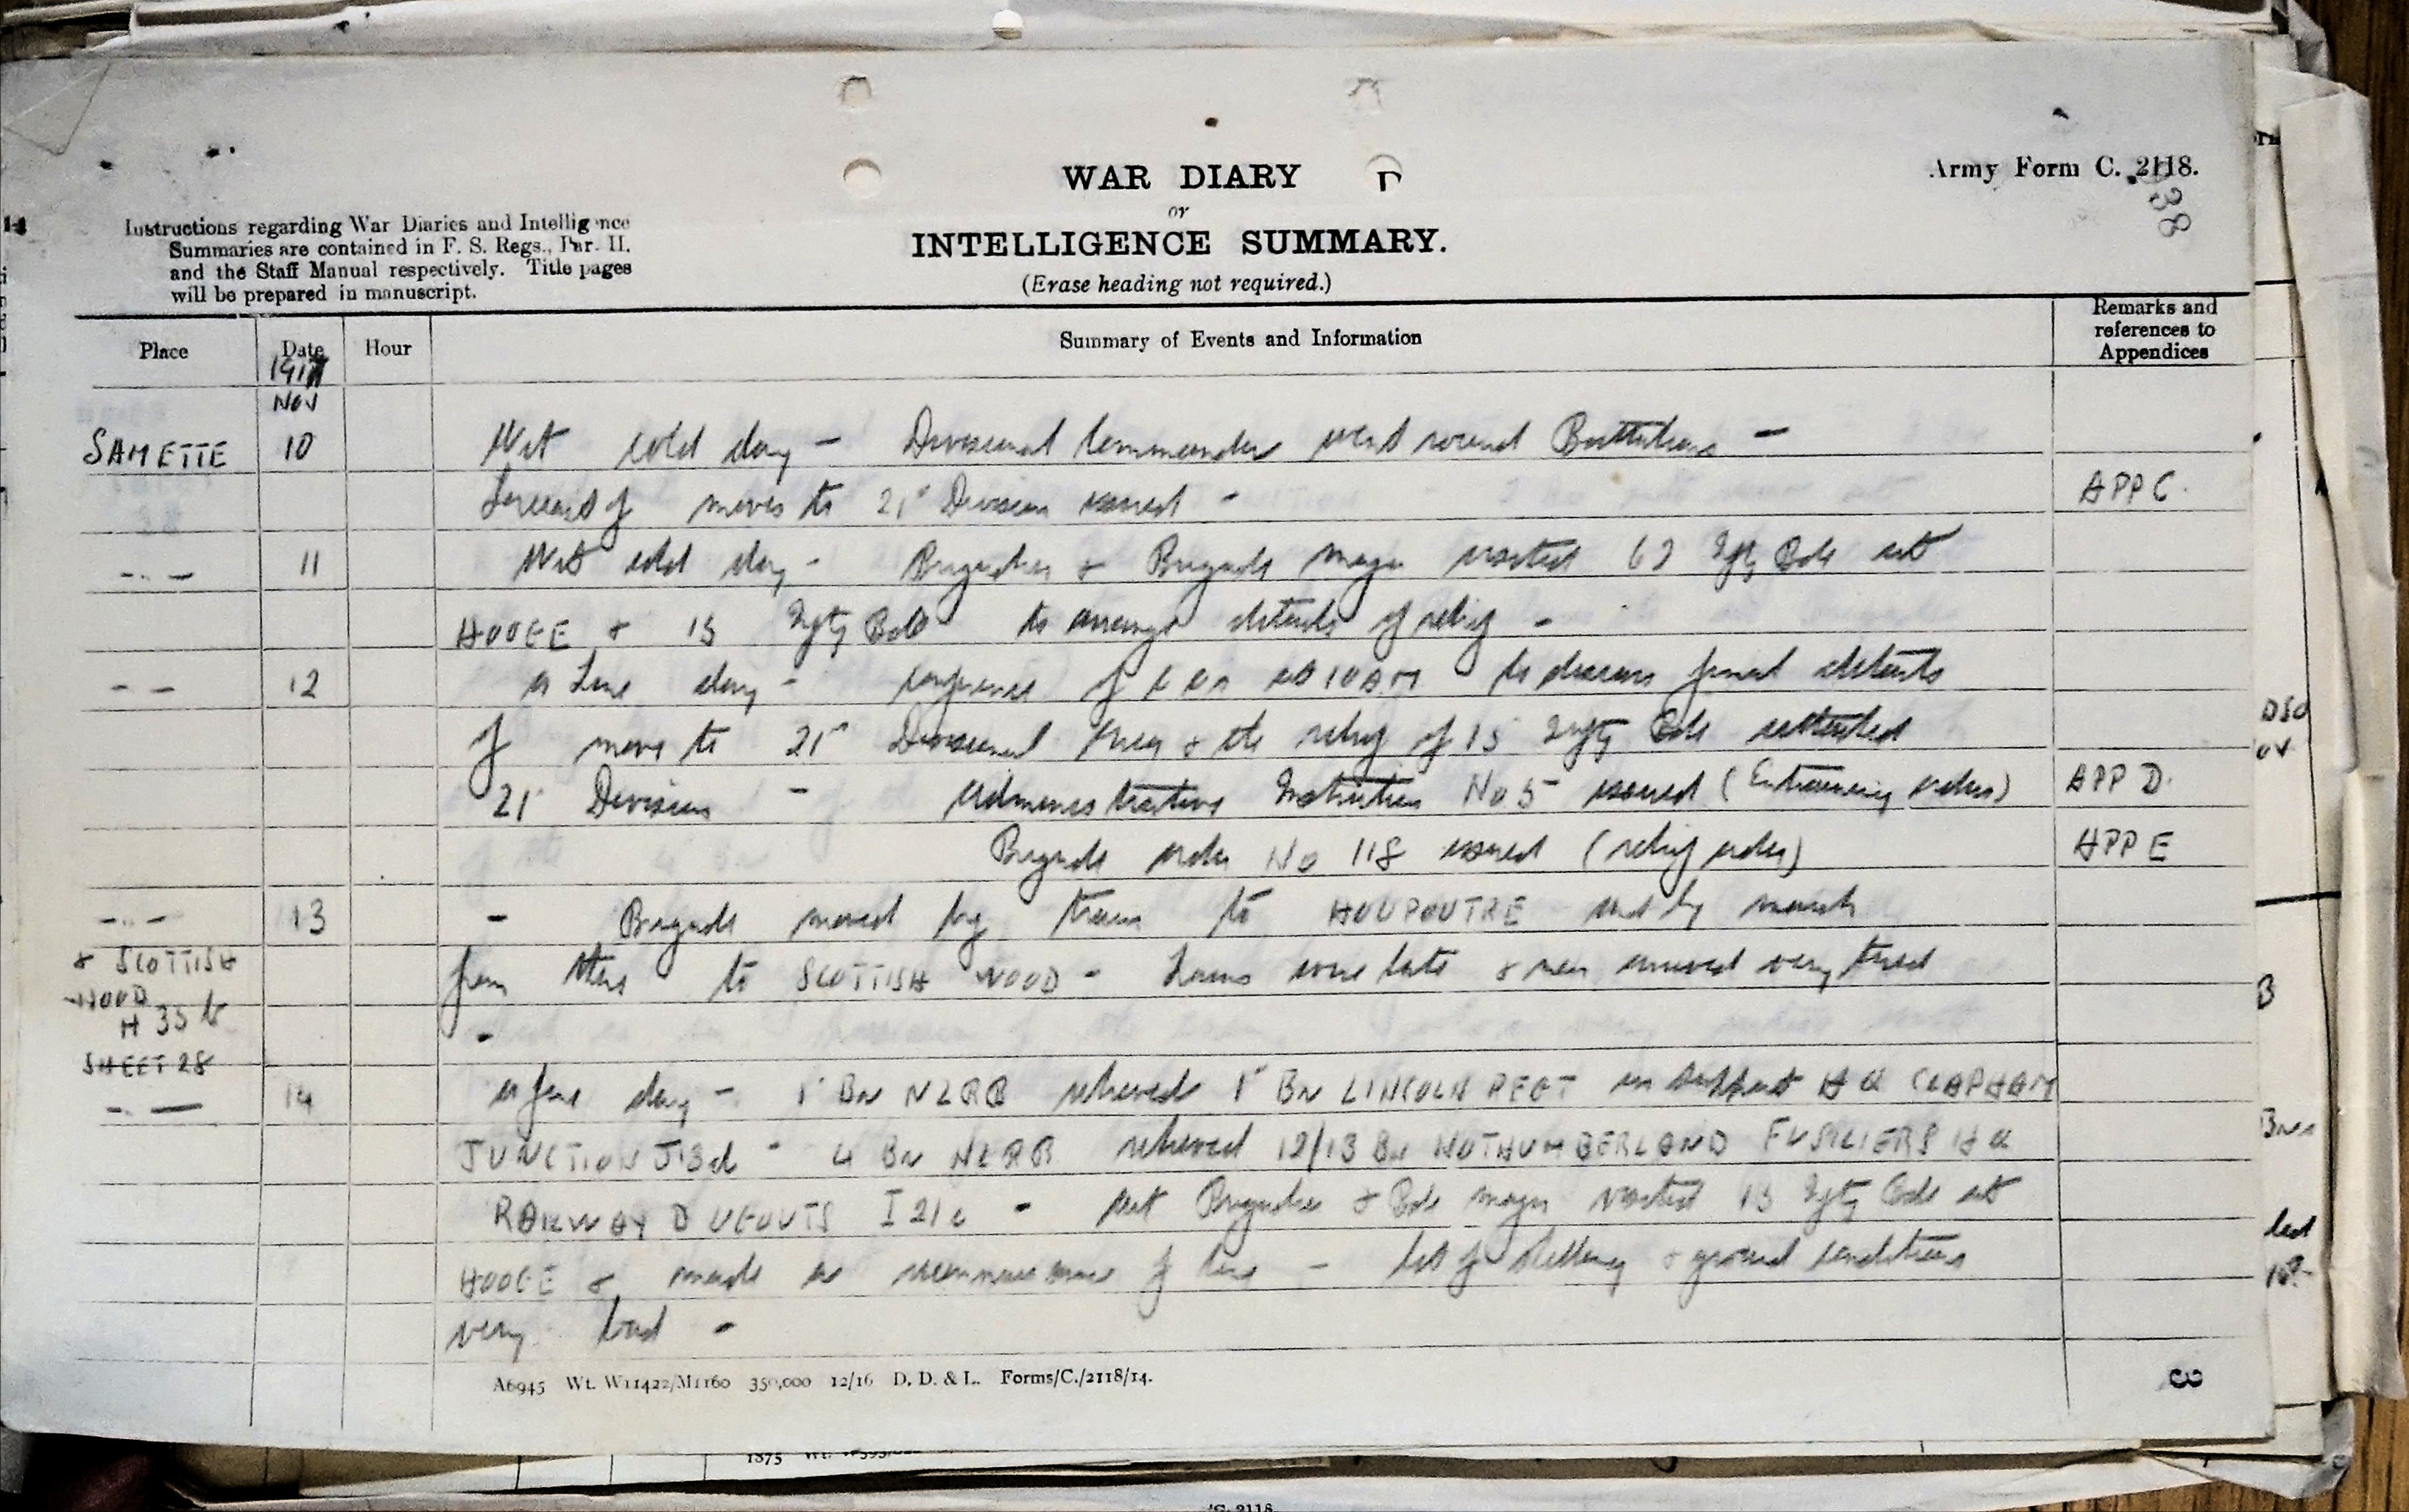 WAR DIARY
or
INTELLIGENCE SUMMARY.
(Erase heading not required.)
Army Form C. 2118.
38
Instructions regarding War Diaries and Intelligence
Summaries are contained in F. S. Regs., Par. II.
and the Staff Manual respectively. Title pages
will be prepared in manuscript.
Place Date Hour Summary of Events and Information Remarks and references to Appendices
1917
Nov
SAMETTE 10 Wet cold day - Divisional Commander went round Battalions -
of moves to 21st Division issued - APP C.
-.- 11 Wet cold day - Brigadier & Brigade Major visited 62 Infty Bde at
HOOGE & 15 Infty Bde to arrange details of relief -
-- 12 a fine day - conference of C Os at 10 AM to discuss final details
of move to 21st Divisional Area & the relief of 15 Infty Bde attached
21st Division - Administrative Instruction No 5 issued (Entraining orders) APP D.
Brigade order No 118 issued (relief order) APP E
-.- 13 - Brigade moved by train to HOUPOUTRE and by march
& SCOTTISH WOOD from there to SCOTTISH WOOD - Trains were late & men arrived very tired
H 35 b -
SHEET 28
-.- 14 a fine day - 1st Bn NZRB relieved 1st Bn LINCOLN REGT in support H Q CLAPHAM
JUNCTION J13d - 4 Bn NZRB relieved 12/13 Bn NOTHUMBERLAND FUSILIERS H Q
RAILWAY DUGOUTS I 21c - Brigadier & Bde Major visited 15 Infty Bde at
HOOGE & made a reconnaissance of line - lot of shelling & ground conditions
very bad -
A6945 Wt. W11422/M1160 350,000 12/16 D. D. & L. Forms/C./2118/14.
3